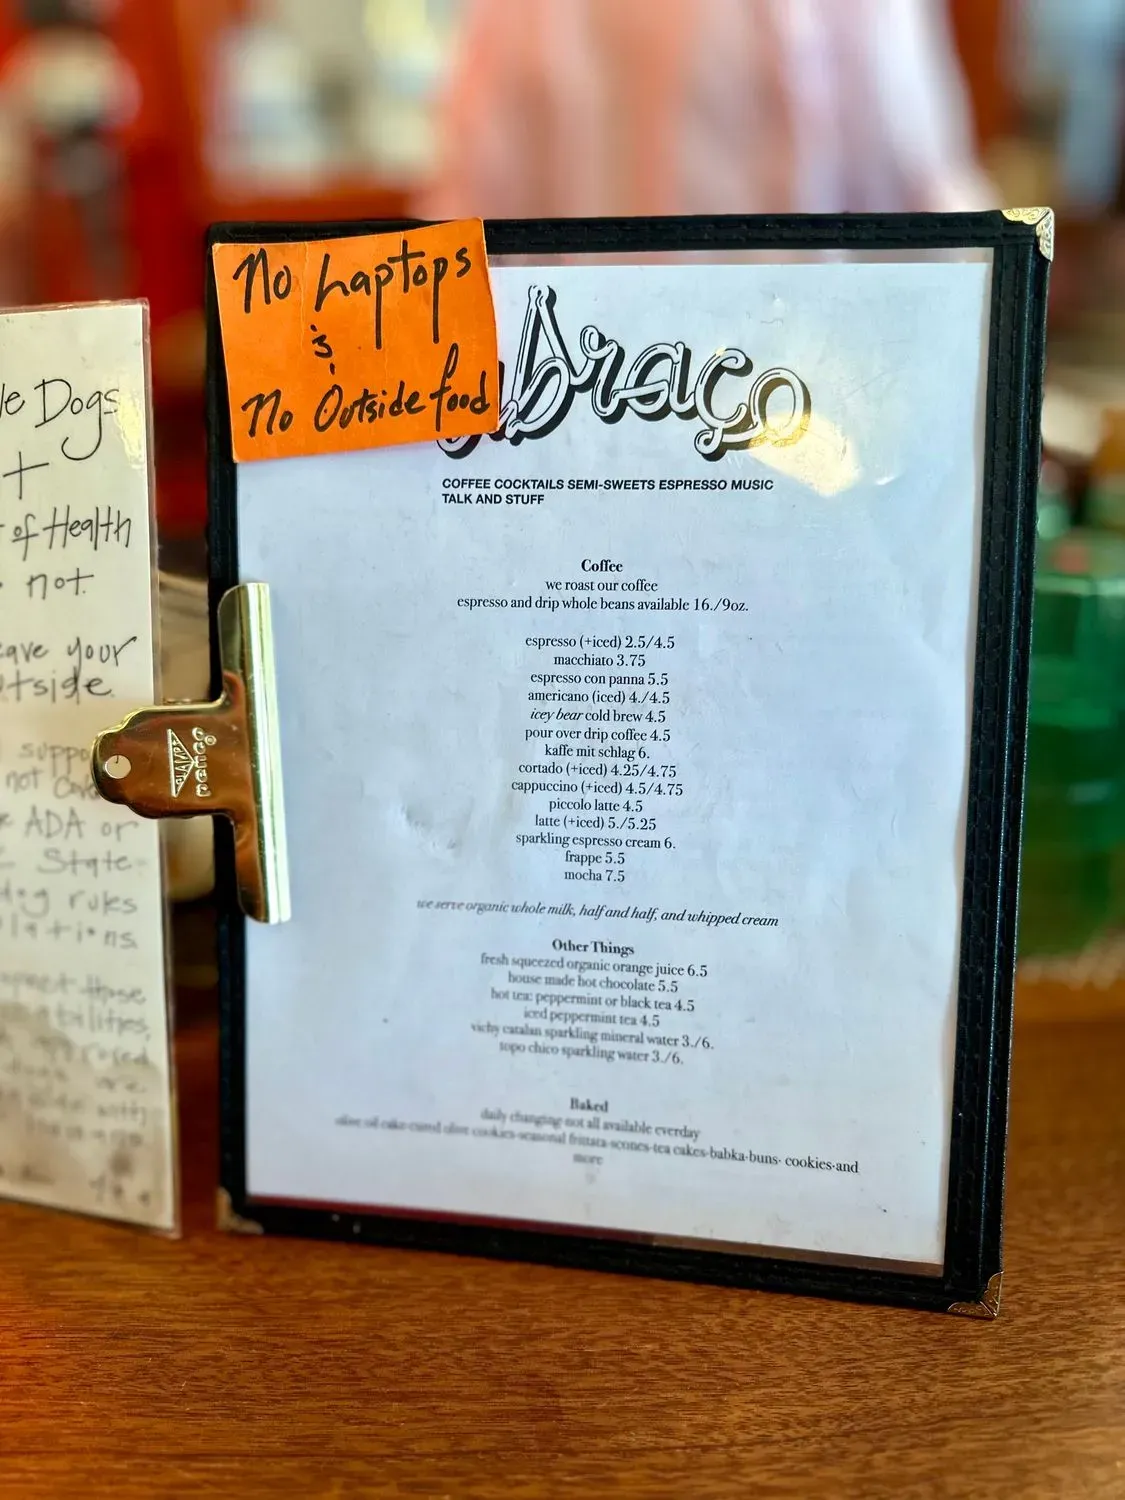 No Laptops
&
No Outside food
abraço
COFFEE COCKTAILS SEMI-SWEETS ESPRESSO MUSIC
TALK AND STUFF
Coffee
we roast our coffee
espresso and drip whole beans available 16./9oz.
espresso (+iced) 2.5/4.5
macchiato 3.75
espresso con panna 5.5
americano (iced) 4./4.5
icey bear cold brew 4.5
pour over drip coffee 4.5
kaffe mit schlag 6.
cortado (+iced) 4.25/4.75
cappuccino (+iced) 4.5/4.75
piccolo latte 4.5
latte (+iced) 5./5.25
sparkling espresso cream 6.
frappe 5.5
mocha 7.5
we serve organic whole milk, half and half, and whipped cream
Other Things
fresh squeezed organic orange juice 6.5
house made hot chocolate 5.5
hot tea: peppermint or black tea 4.5
iced peppermint tea 4.5
vichy catalan sparkling mineral water 3./6.
topo chico sparkling water 3./6.
Baked
daily changing not all available everday
olive oil cake-cured olive cookies-seasonal frittata-scones-tea cakes-babka-buns- cookies-and
more
Dogs
+
of Health
not.
your
suppo
not
ADA or
State
rules
those
with
penco
CLAMP